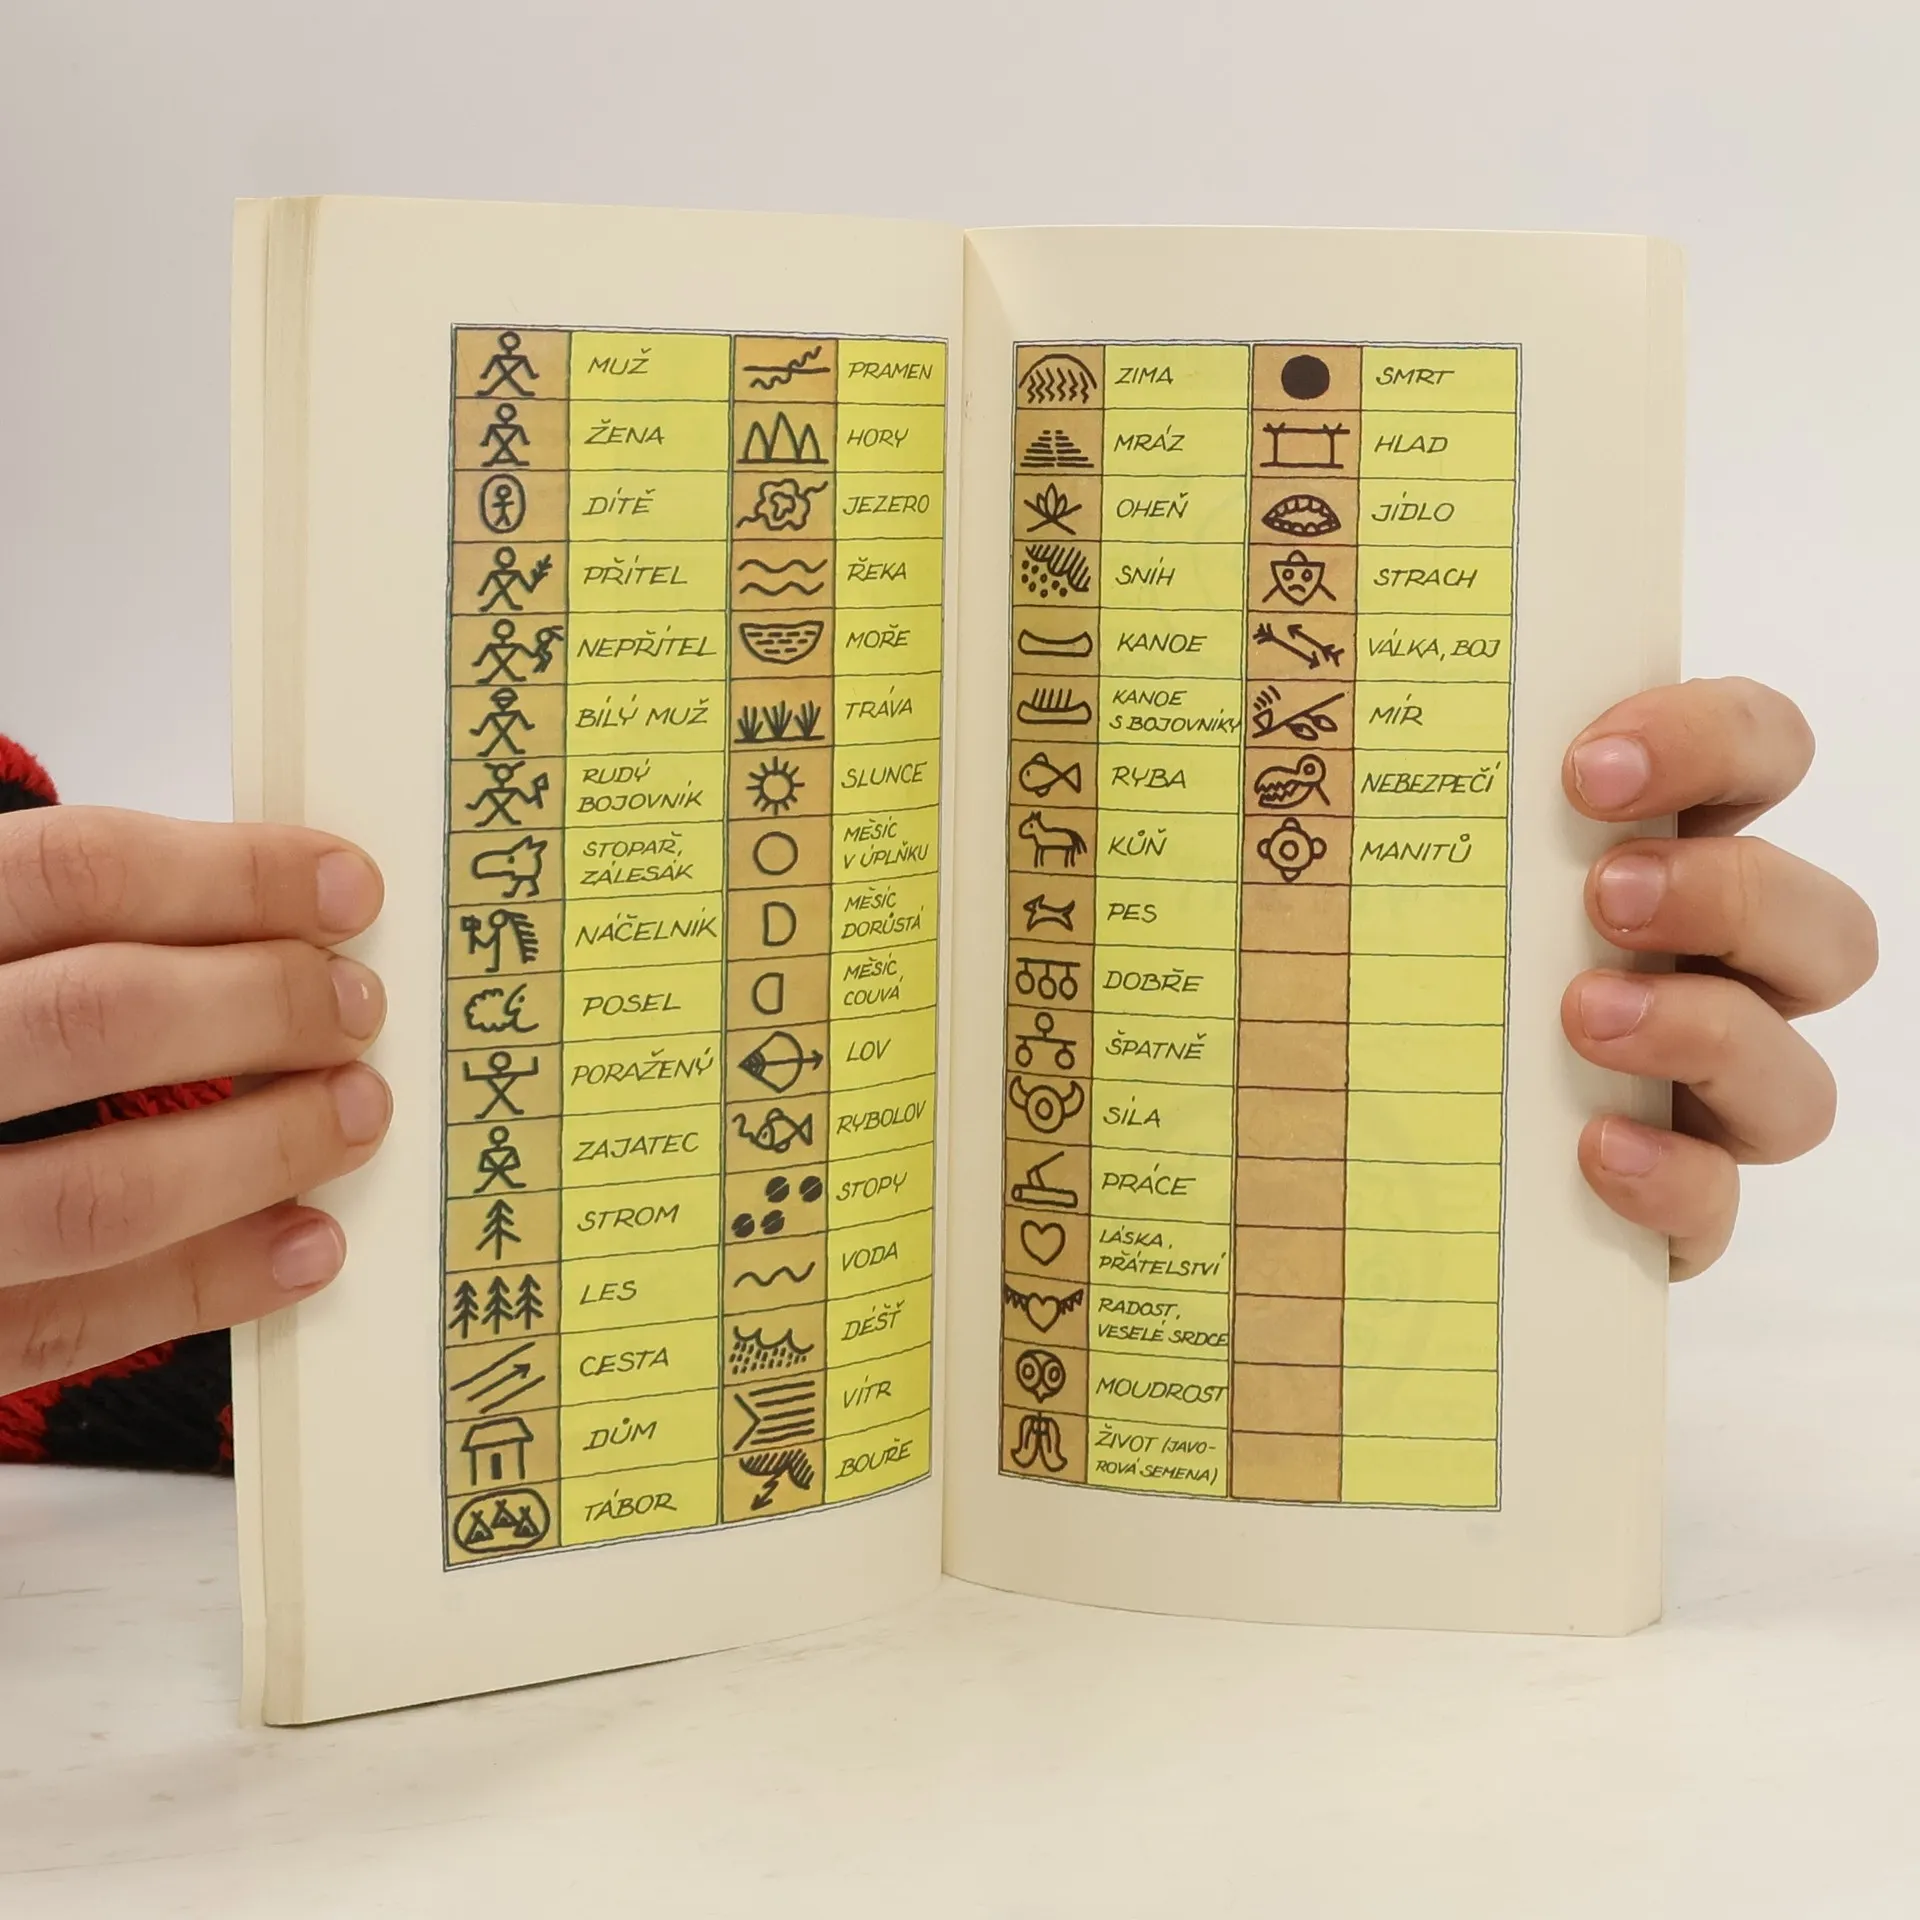 MUŽ
ŽENA
DÍTĚ
PŘÍTEL
NEPŘÍTEL
BÍLÝ MUŽ
RUDÝ
BOJOVNÍK
STOPAŘ,
ZÁLESÁK
NÁČELNÍK
POSEL
PORAŽENÝ
ZAJATEC
STROM
LES
CESTA
DŮM
TÁBOR
PRAMEN
HORY
JEZERO
ŘEKA
MOŘE
TRÁVA
SLUNCE
MĚSÍC
V ÚPLŇKU
MĚSÍC
DORŮSTÁ
MĚSÍC,
COUVÁ
LOV
RYBOLOV
STOPY
VODA
DÉŠŤ
VÍTR
BOUŘE
ZIMA
MRÁZ
OHEŇ
SNÍH
KANOE
KANOE
S BOJOVNÍKY
RYBA
KŮŇ
PES
DOBŘE
ŠPATNĚ
SÍLA
PRÁCE
LÁSKA,
PŘÁTELSTVÍ
RADOST,
VESELÉ SRDCE
MOUDROST
ŽIVOT (JAVO-
ROVÁ SEMENA)
SMRT
HLAD
JÍDLO
STRACH
VÁLKA, BOJ
MÍR
NEBEZPEČÍ
MANITŮ